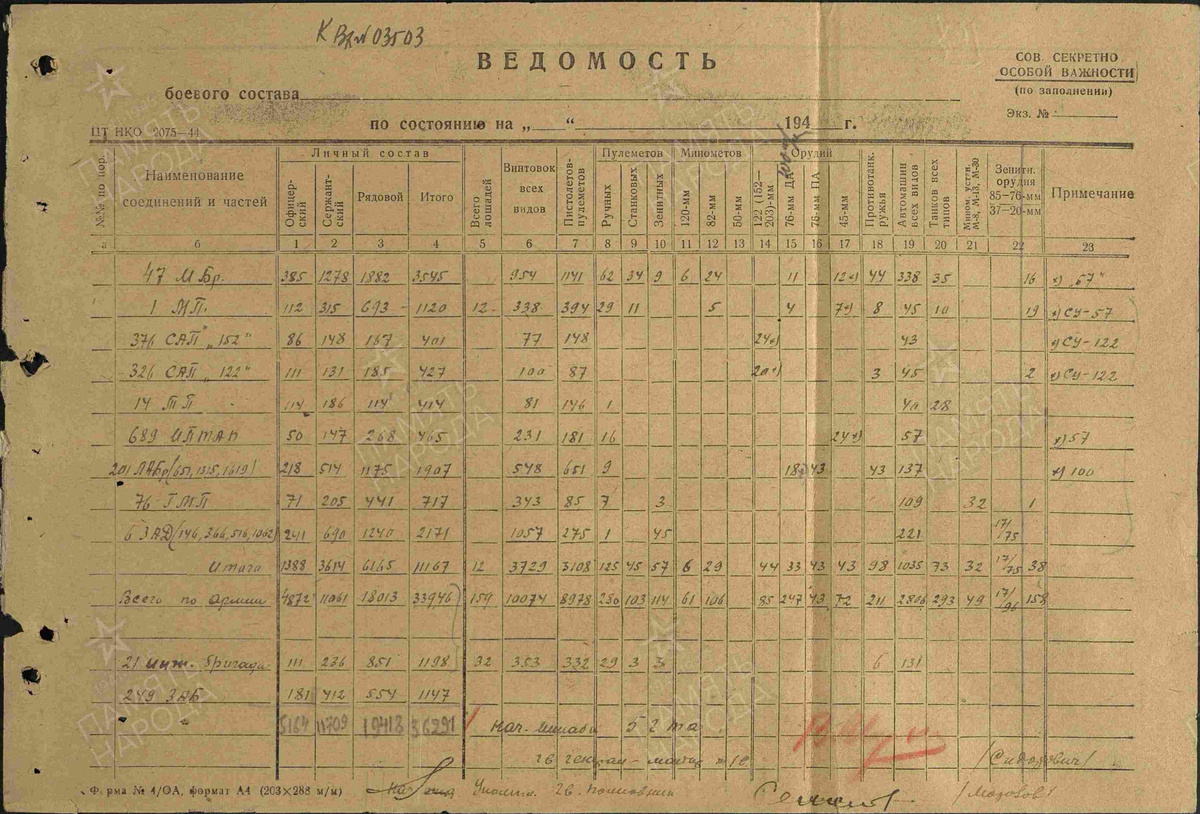 К Вх№03503
ВЕДОМОСТЬ
СОВ. СЕКРЕТНО
ОСОБОЙ ВАЖНОСТИ
(по заполнении)
Экз. №
боевого состава
по состоянию на „ “ 194 г.
ЦТ НКО 2075—44
№№ по пор. Наименование соединений и частей Личный состав Всего лошадей Винтовок всех видов Пистолетов-пулеметов Пулеметов Минометов Орудий Противотанк. ружья Автомашин всех видов Танков всех типов Мином. устан. М-8, М-13, М-30 Зенитн. орудия 85—76-мм 37—20-мм Примечание
Офицерский Сержантский Рядовой Итого Ручных Станковых Зенитных 120-мм 82-мм 50-мм 122 (152—203)-мм 76-мм ДА 76-мм ПА 45-мм
а б 1 2 3 4 5 6 7 8 9 10 11 12 13 14 15 16 17 18 19 20 21 22 23
47 МБр. 385 1278 1882 3545 954 1141 62 34 9 6 24 11 12х) 44 338 35 16 х) „57"
1 МП. 112 315 693 - 1120 12 338 394 29 11 5 4 7х) 8 45 10 19 х) СУ-57
376 САП „152" 86 148 167 401 77 148 24х) 43 х) СУ-122
326 САП „122" 111 131 185 427 100 87 20х) 3 45 2 х) СУ-122
14 ТП 114 186 114 414 81 146 1 40 28
689 ИПТАП 50 147 268 465 231 181 16 24х) 57 х) 57
201 ЛАБр (651, 1315, 1619) 218 514 1175 1907 548 651 9 18 43 43 137 х) 100
76 ГМП 71 205 441 717 343 85 7 3 109 32 1
6 ЗАД (146, 366, 516, 1062) 241 690 1240 2171 1057 275 1 45 221 17/75
Итого 1388 3614 6165 11167 12 3729 3108 125 45 57 6 29 44 33 43 43 98 1035 73 32 17/75 38
Всего по Армии 4872 11061 18013 33946 159 10074 8978 103 114 61 106 85 247 43 72 211 2806 293 49 17/96 158
21 инж. бригада 111 236 851 1198 32 353 332 29 3 3 6 131
249 ЗАБ 181 412 554 1147
" 5164 11709 19418 36291 Нач. штаба 5 г та
гв генерал-майор т/в /Сидорович/
гв. полковник /Мозолов/
Форма № 4/ОА, формат А4 (203×288 м/м)
ПАМЯТЬ НАРОДА